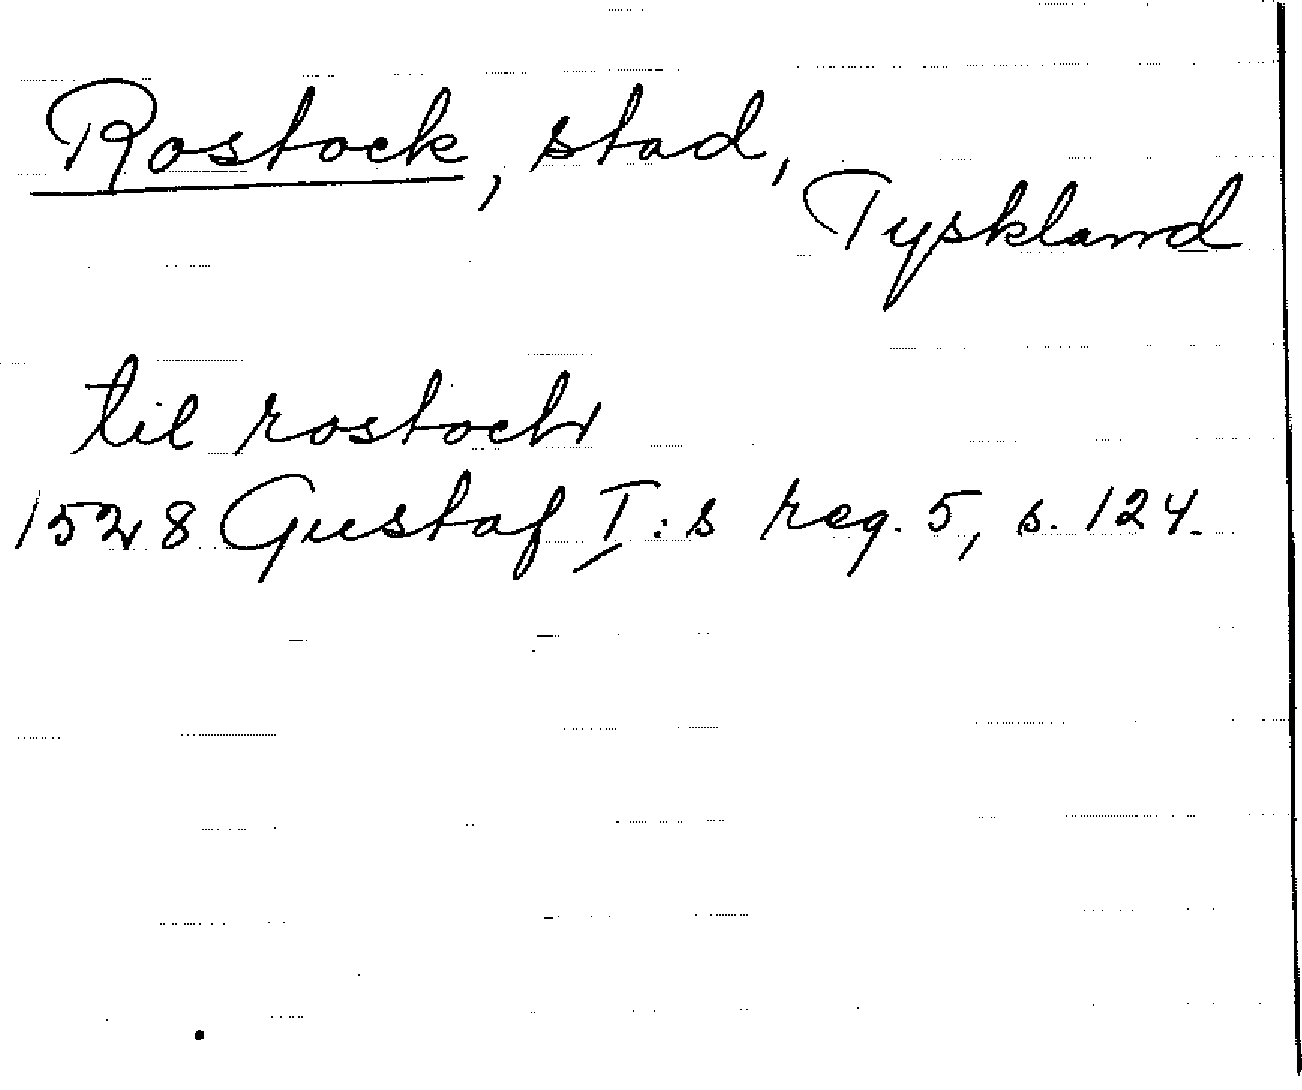 Rostock, stad,
Tyskland
til rostoch
1528 Gustaf I:s reg. 5, s. 124.